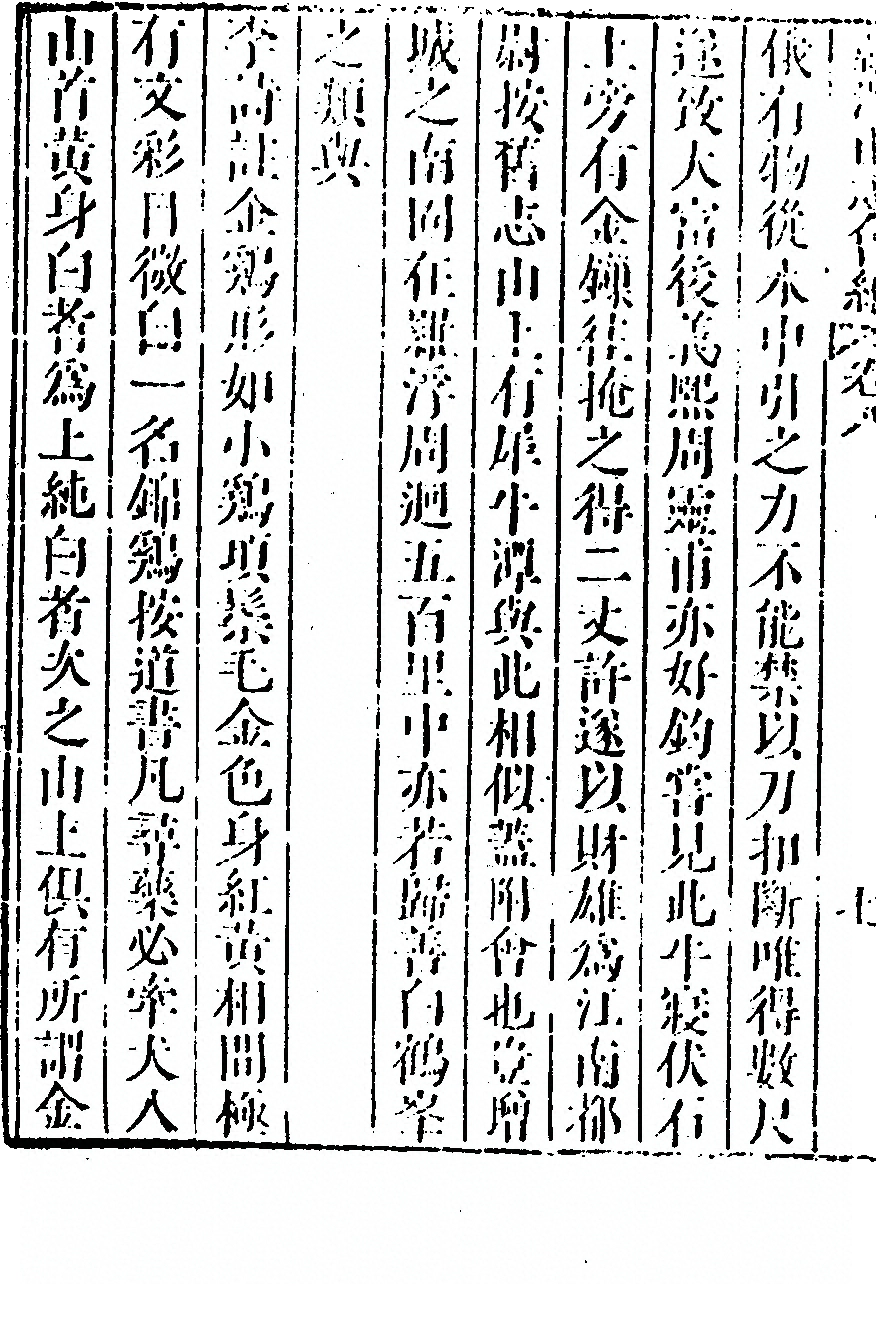 俄有物從水中引之力不能禁以刀扣斷唯得數尺
遂致大富後義熙周靈甫亦好釣嘗見此牛寢伏石
上旁有金鏁往掩之得二丈許遂以財雄為江南都
尉按舊志山上有犀牛潭與此相似蓋附會也豈增
城之南固在羅浮周迴五百里中亦若歸善白鶴峯
之類與
李詩註金鷄形如小鷄項鬃毛金色身紅黃相間極
有文彩目微白一名錦鷄按道書凡尋藥必牽犬八
山首黃身白者為上純白者次之山上俱有所謂金
卷八
七